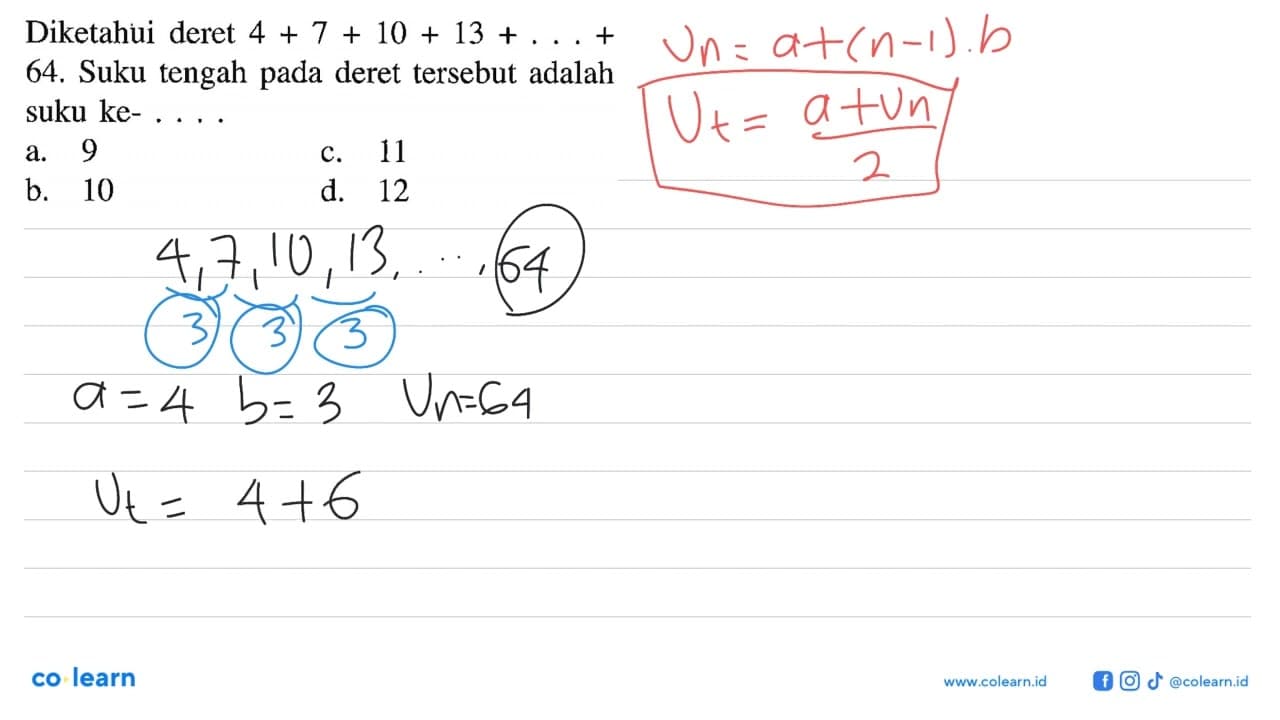 Diketahui deret 4 + 7 + 10 + 13 + . . . +
64. Suku tengah pada deret tersebut adalah
suku ke- . . . .
a. 9 c. 11
b. 10 d. 12
Un = a+(n-1).b
Ut = a+Un
2
4, 7, 10, 13, ..., 64
3 3 3
a = 4 b = 3 Un=64
Ut = 4+6
co learn
www.colearn.id @colearn.id